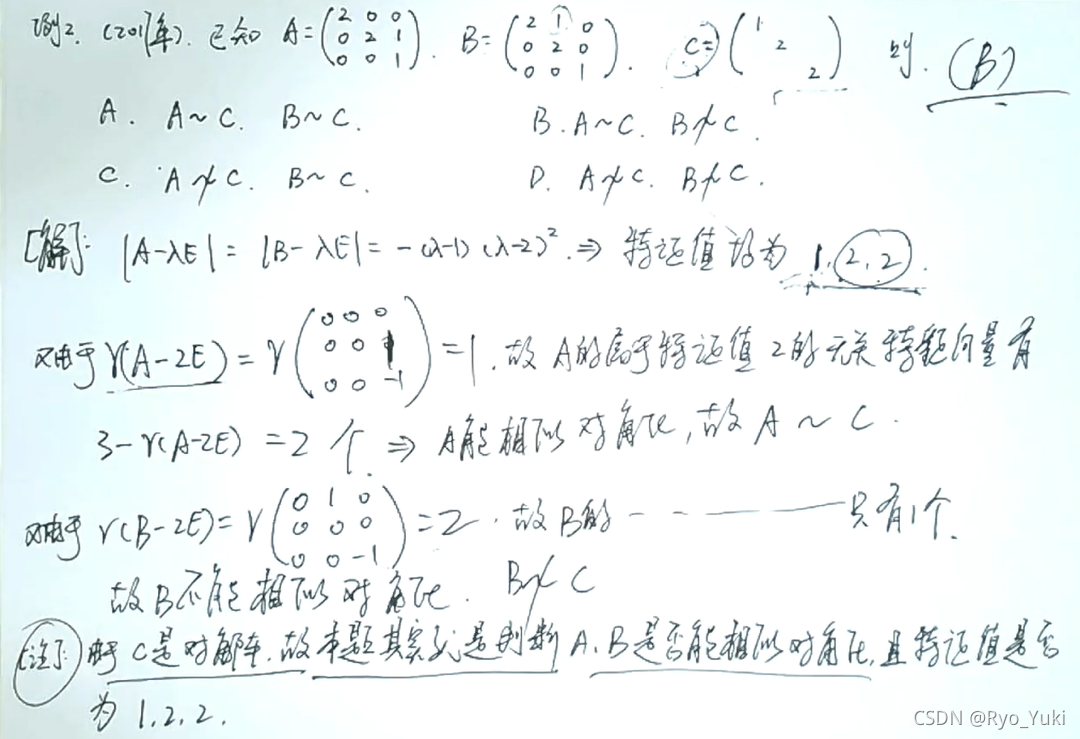 例2. (2017年). 已知 A=(2 0 0; 0 2 1; 0 0 1). B=(2 1 0; 0 2 0; 0 0 1). C=(1 2 2) 则. (B)
A. A~C. B~C. B. A~C. B≁C.
C. A≁C. B~C. D. A≁C. B≁C.
[解]: |A-λE| = |B-λE| = -(λ-1)(λ-2)². ⇒ 特征值均为 1, 2, 2.
又由于 r(A-2E) = r(0 0 0; 0 0 1; 0 0 -1) = 1. 故 A的属于特征值 2 的无关特征向量有
3-r(A-2E) = 2 个. ⇒ A能相似对角化, 故 A ~ C.
又由于 r(B-2E) = r(0 1 0; 0 0 0; 0 0 -1) = 2. 故 B的 - - —— 只有1个.
故 B不能相似对角化. B≁C
[注]: 由于 C是对角阵. 故本题其实就是判断 A. B是否能相似对角化, 且特征值是否
为 1. 2. 2.
CSDN @Ryo_Yuki